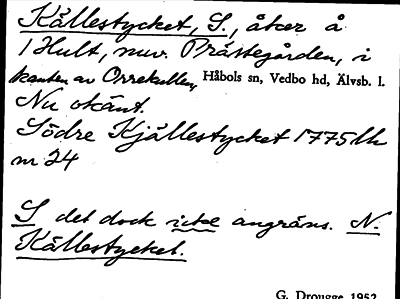 Källestycket, S., åker å
1 Hult, nuv. Prästegården, i
kanten av Orrekullen, Håbols sn, Vedbo hd, Älvsb. l.
Nu okänt.
Södre Kjällestycket 1775 lh
nr 24
S det dock icke angräns. N.
Källestycket.
G. Drougge 1952